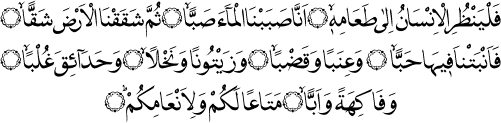 فَلۡيَنۡظُرِ الۡاِنۡسَانُ اِلٰى طَعَامِهٖۤۙ‏ اَنَّا صَبَبۡنَا الۡمَآءَ صَبًّاۙ‏ ثُمَّ شَقَقۡنَا الۡاَرۡضَ شَقًّاۙ‏
فَاَنۡۢبَتۡنَا فِيۡهَا حَبًّاۙ‏ وَّ عِنَبًا وَّقَضۡبًاۙ‏ وَّزَيۡتُوۡنًا وَّنَخۡلًاۙ‏ وَحَدَآئِقَ غُلۡبًاۙ‏
وَّفَاكِهَةً وَّاَبًّاۙ‏ مَّتَاعًا لَّـكُمۡ وَلِاَنۡعَامِكُمۡؕ‏